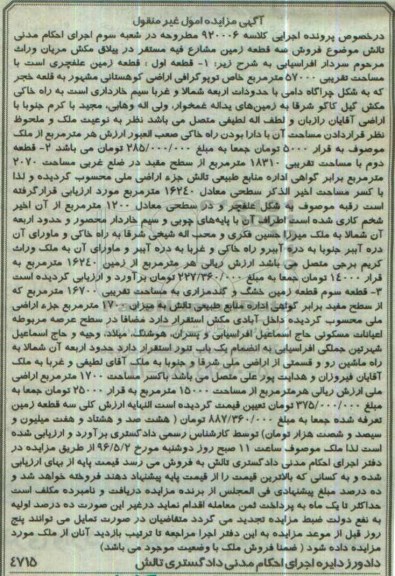 آگهی مزایده اموال غیر منقول
درخصوص پرونده اجرایی کلاسه ۹۲۰۰۰۶ مطروحه در شعبه سوم اجرای احکام مدنی
تالش موضوع فروش سه قطعه زمین مشارع فیه مستقر در ییلاق مکش مریان وراث
مرحوم سردار افراسیابی به شرح زیر: ۱- قطعه اول ، قطعه زمین علفچری است با
مساحت تقریبی ۵۷۰۰۰ مترمربع خاص توپوگرافی اراضی کوهستانی مشهور به قلعه خجر
که به شکل چراگاه دامی با حدودات اربعه شمالا و غربا سیم خارداری است به راه خاکی
مکش گیل کاگو شرقا به زمین‌های یداله غمخوار، ولی اله وهابی، مجید با کرم جنوبا با
اراضی آقایان رازبان و لطف اله لطیفی متصل می باشد نظر به نوعیت ملک و ملحوظ
نظر قراردادن مساحت آن با دارا بودن راه خاکی صعب العبور ارزش هر مترمربع از ملک
موصوف به قرار ۵۰۰۰ تومان جمعا به مبلغ ۲۸۵/۰۰۰/۰۰۰ تومان می باشد ۲- قطعه
دوم با مساحت تقریبی ۱۸۳۱۰ مترمربع از سطح مفید در ضلع غربی مساحت ۲۰۷۰
مترمربع برابر گواهی اداره منابع طبیعی تالش جزء اراضی ملی محسوب گردیده و لذا
با کسر مساحت اخیر الذکر سطحی معادل ۱۶۲۴۰ مترمربع مورد ارزیابی قرارگرفته
است رقبه موصوف به شکل علفچر و در سطحی معادل ۱۲۰۰ مترمربع از آن اخیر
شخم کاری شده است اطراف آن با پایه‌های چوبی و سیم خاردار محصور و حدود اربعه
آن شمالا به ملک میرزا حسین فکری و محب اله شیخی شرقا به راه خاکی و ماورای آن
دره آببر جنوبا به دره آببرو راه خاکی و غربا به دره آببر و ماورای آن به ملک وراث
کریم برجی متصل می باشد ارزش ریالی هر مترمربع از زمین ۱۶۲۴۰ مترمربع به
قرار ۱۴۰۰۰ تومان جمعا به مبلغ ۲۲۷/۳۶۰/۰۰۰ تومان برآورد و ارزیابی گردیده است
۳- قطعه سوم قطعه زمین خشگ و گندمزاری به مساحت تقریبی ۱۶۷۰۰ مترمربع که
از سطح مفید برابر گواهی اداره منابع طبیعی تالش به میزان ۱۷۰۰ مترمربع جزء اراضی
ملی محسوب گردیده داخل آبادی مکش استقرار دارد مضافا در سطح عرصه مربوطه
اعیانات مسکونی حاج اسماعیل افراسیابی و پسران، هوشنگ میلاد، وحیه و حاج اسماعیل
شهرتین جملگی افراسیابی به انضمام یک باب تنور استقرار دارد حدود اربعه آن شمالا به
راه ماشین رو و قسمتی از اراضی ملی شرقا و جنوبا به ملک آقای لطیفی و غربا به ملک
آقایان فیروزان و هدایت پور علی متصل می باشد باکسر مساحت ۱۷۰۰ مترمربع اراضی
ملی ارزش ریالی هرمترمربع از مساحت ۱۵۰۰۰ مترمربع به قرار ۲۵۰۰۰ تومان جمعا به
مبلغ ۳۷۵/۰۰۰/۰۰۰ تومان تعیین قیمت گردیده است النهایه ارزش کلی سه قطعه زمین
تعرفه شده جمعا به مبلغ ۸۸۷/۳۶۰/۰۰۰ تومان ( هشت صد و هشتاد و هفت میلیون و
سیصد و شصت هزار تومان) توسط کارشناس رسمی دادگستری برآورد و ارزیابی شده
است لذا ملک موصوف ساعت ۱۱ صبح روز دوشنبه مورخ ۹۶/۵/۲ از طریق مزایده در
دفتر اجرای احکام مدنی دادگستری تالش به فروش می رسد قیمت پایه از بهای ارزیابی
شده و به کسانی که بالاترین قیمت را از قیمت پایه پیشنهاد دهند فروخته خواهد شد و
ده درصد مبلغ پیشنهادی فی المجلس از برنده مزایده دریافت و نامبرده مکلف است
حداکثر تا یک ماه به پرداخت ثمن معامله اقدام نماید درغیر این صورت ده درصد اولیه
به نفع دولت ضبط مزایده تجدید می گردد متقاضیان در صورت تمایل می توانند پنج
روز قبل از موعد مزایده به این دفتر اجرا مراجعه تا ترتیب بازدید آنان از ملک مورد
مزایده داده شود ( ضمنا فروش ملک با وضعیت موجود می باشد)
دادورز دایره اجرای احکام مدنی دادگستری تالش ۴۷۱۵